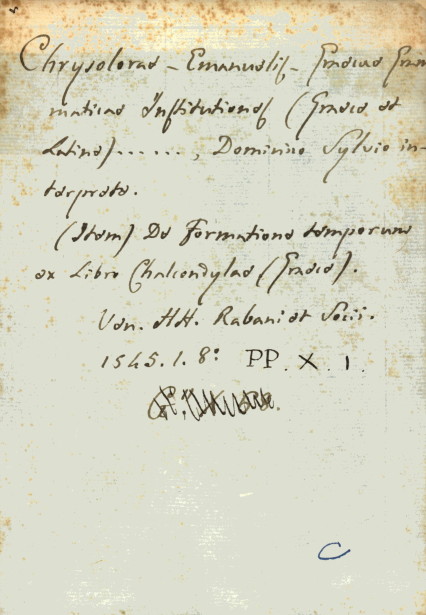 Chrysolorae - Emanuelis - Graecae Gram
maticae Institutiones (Graece et
Latine) ......, Dominico Sylvio in-
terprete.
(Item) De Formatione temporum
ex Libro Chalcondylae (Graece).
Ven. HH. Rabani et Socii.
1545. 1. 8: PP. X. 1.
C